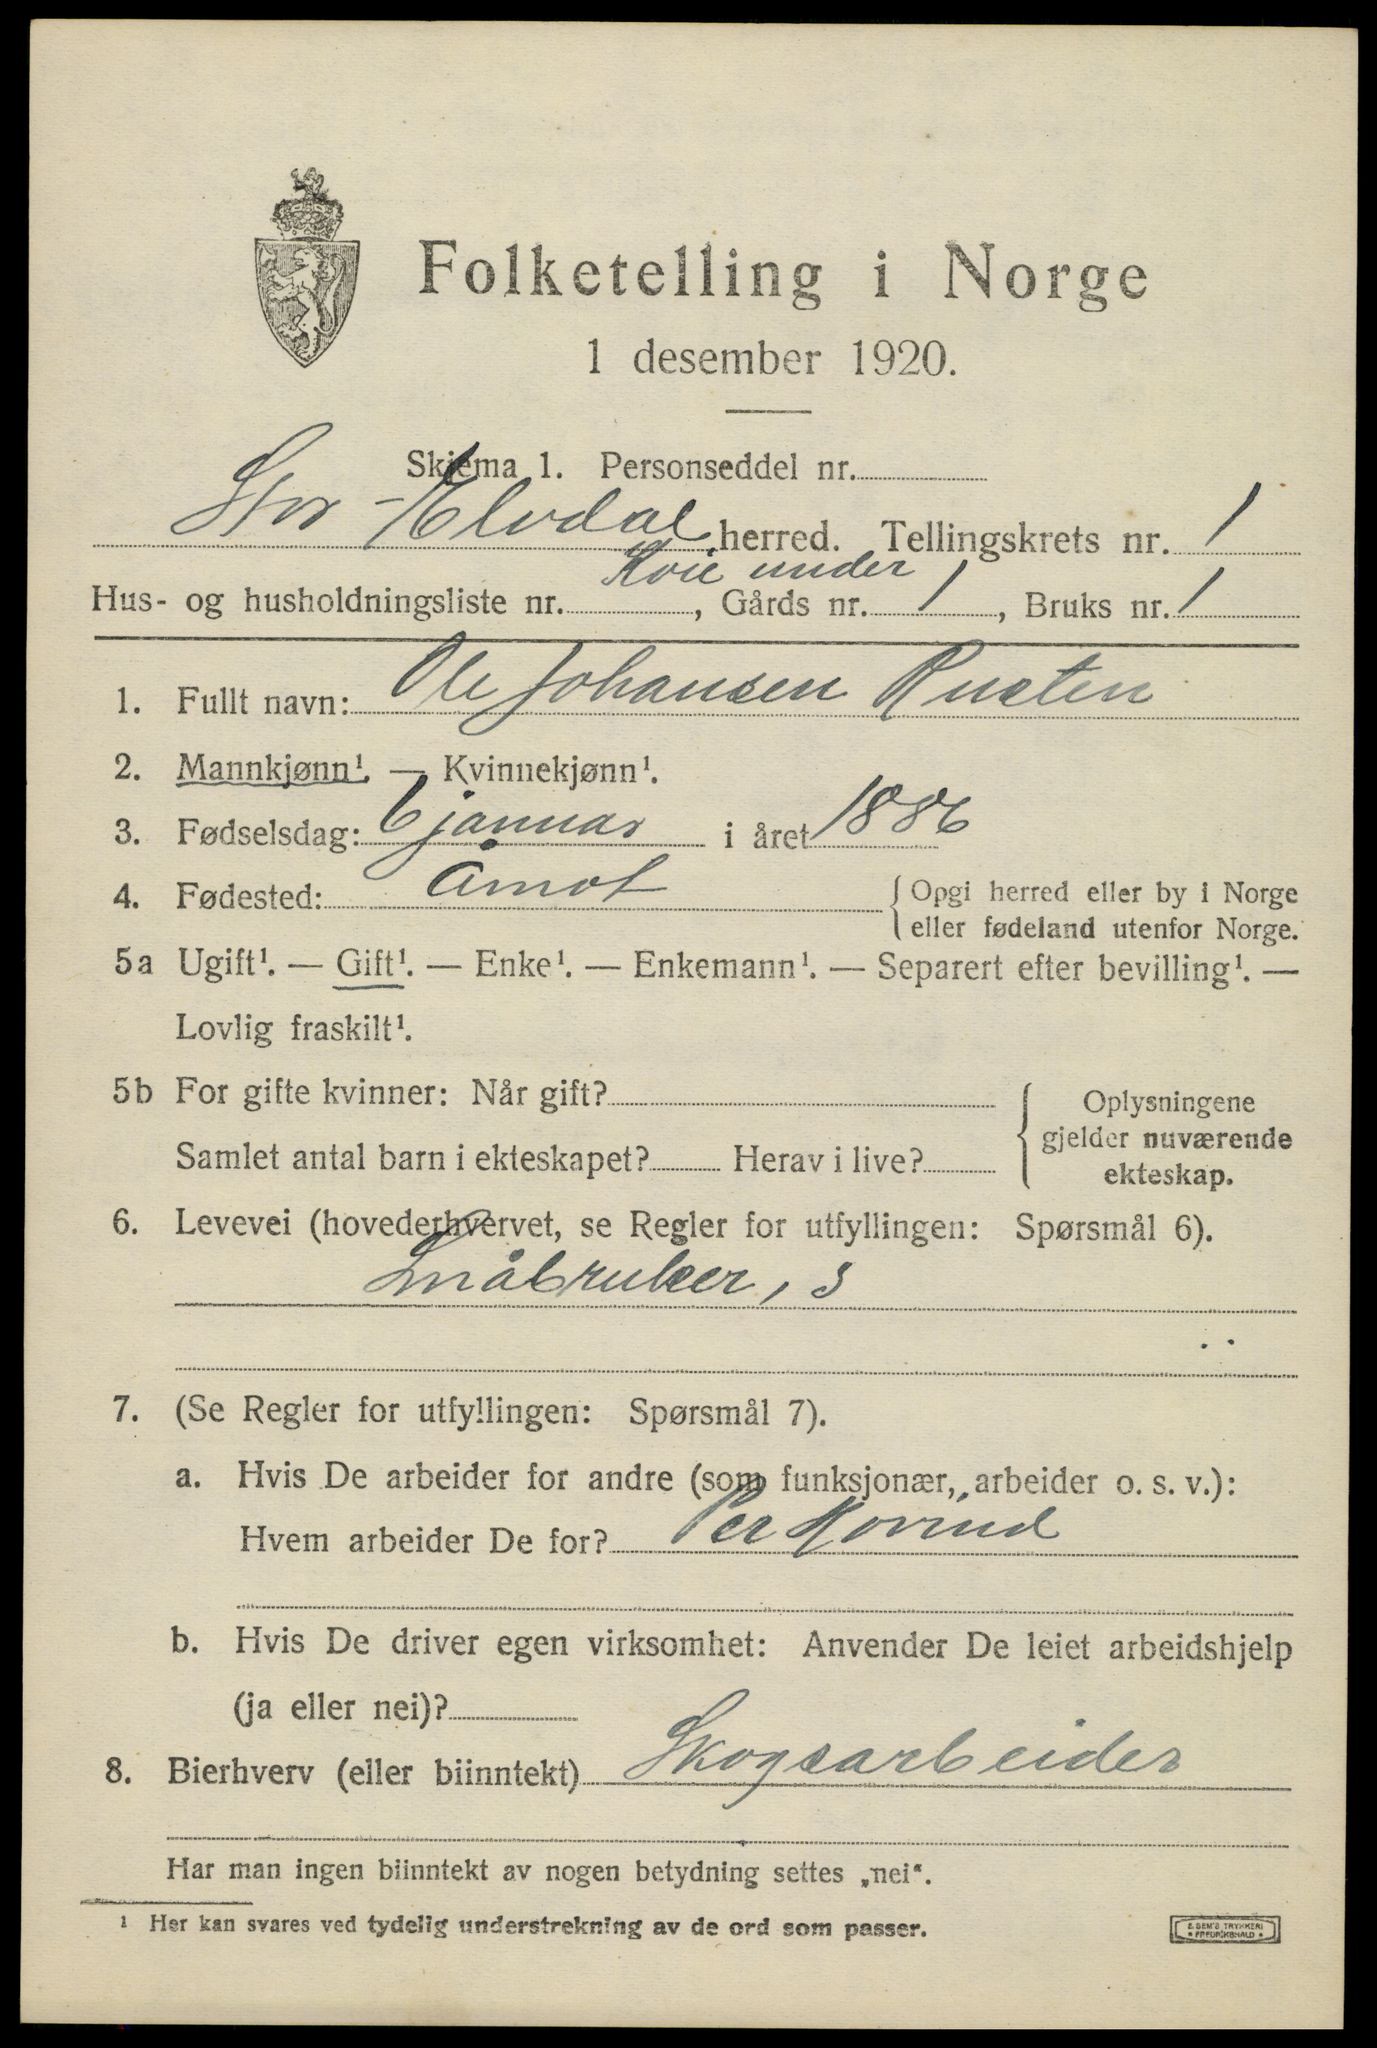 Folketelling i Norge
1 desember 1920.
Skjema 1. Personseddel nr.
Stor-Elvdal herred. Tellingskrets nr. 1
Koie under
Hus- og husholdningsliste nr. , Gårds nr. 1 , Bruks nr. 1
1. Fullt navn: Ole Johansen Rusten
2. Mannkjønn¹. — Kvinnekjønn¹.
3. Fødselsdag: 6 januar i året 1886
4. Fødested: Åmot { Opgi herred eller by i Norge
eller fødeland utenfor Norge.
5a Ugift¹. — Gift¹. — Enke¹. — Enkemann¹. — Separert efter bevilling¹. —
Lovlig fraskilt¹.
5b For gifte kvinner: Når gift? { Oplysningene
gjelder nuværende
Samlet antal barn i ekteskapet? Herav i live?
ekteskap.
6. Levevei (hovederhvervet, se Regler for utfyllingen: Spørsmål 6).
Småbruker, s
7. (Se Regler for utfyllingen: Spørsmål 7).
a. Hvis De arbeider for andre (som funksjonær, arbeider o. s. v.):
Hvem arbeider De for? Per
b. Hvis De driver egen virksomhet: Anvender De leiet arbeidshjelp
(ja eller nei)?
8. Bierhverv (eller biinntekt) Skogsarbeider
Har man ingen biinntekt av nogen betydning settes „nei“.
¹ Her kan svares ved tydelig understrekning av de ord som passer.
E. SEM'S TRYKKERI
* FREDRIKSHALD *